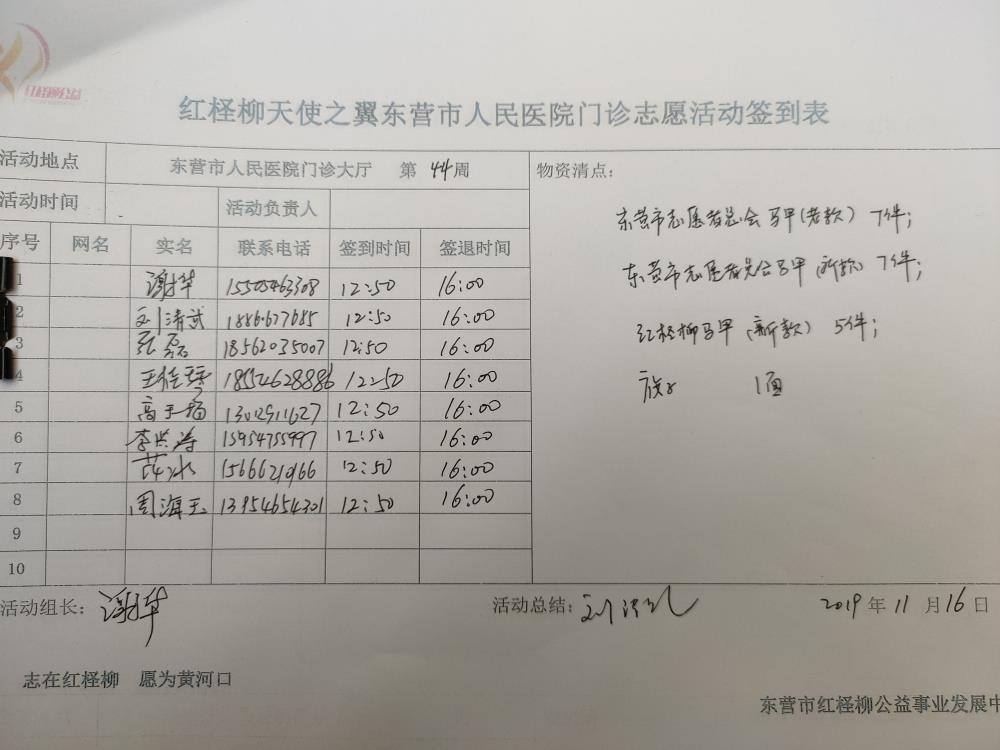 红柽柳公益
红柽柳天使之翼东营市人民医院门诊志愿活动签到表
活动地点 东营市人民医院门诊大厅 第 44 周 物资清点：
活动时间 活动负责人
东营市志愿者总会马甲(老款) 7件;
序号 网名 实名 联系电话 签到时间 签退时间
东营市志愿者总会马甲(新款) 7件;
1 谢华 15505463308 12:50 16:00
2 12:50 16:00
红柽柳马甲(新款) 5件;
3 张磊 18562035007 12:50 16:00
4 18554628886 12:50 16:00
旗子 1面
5 12:50 16:00
6 李洪涛 15954755997 12:50 16:00
7 12:50 16:00
8 周海玉 13954654301 12:50 16:00
9
10
活动组长：谢华 活动总结： 2019 年 11 月 16 日
志在红柽柳 愿为黄河口
东营市红柽柳公益事业发展中